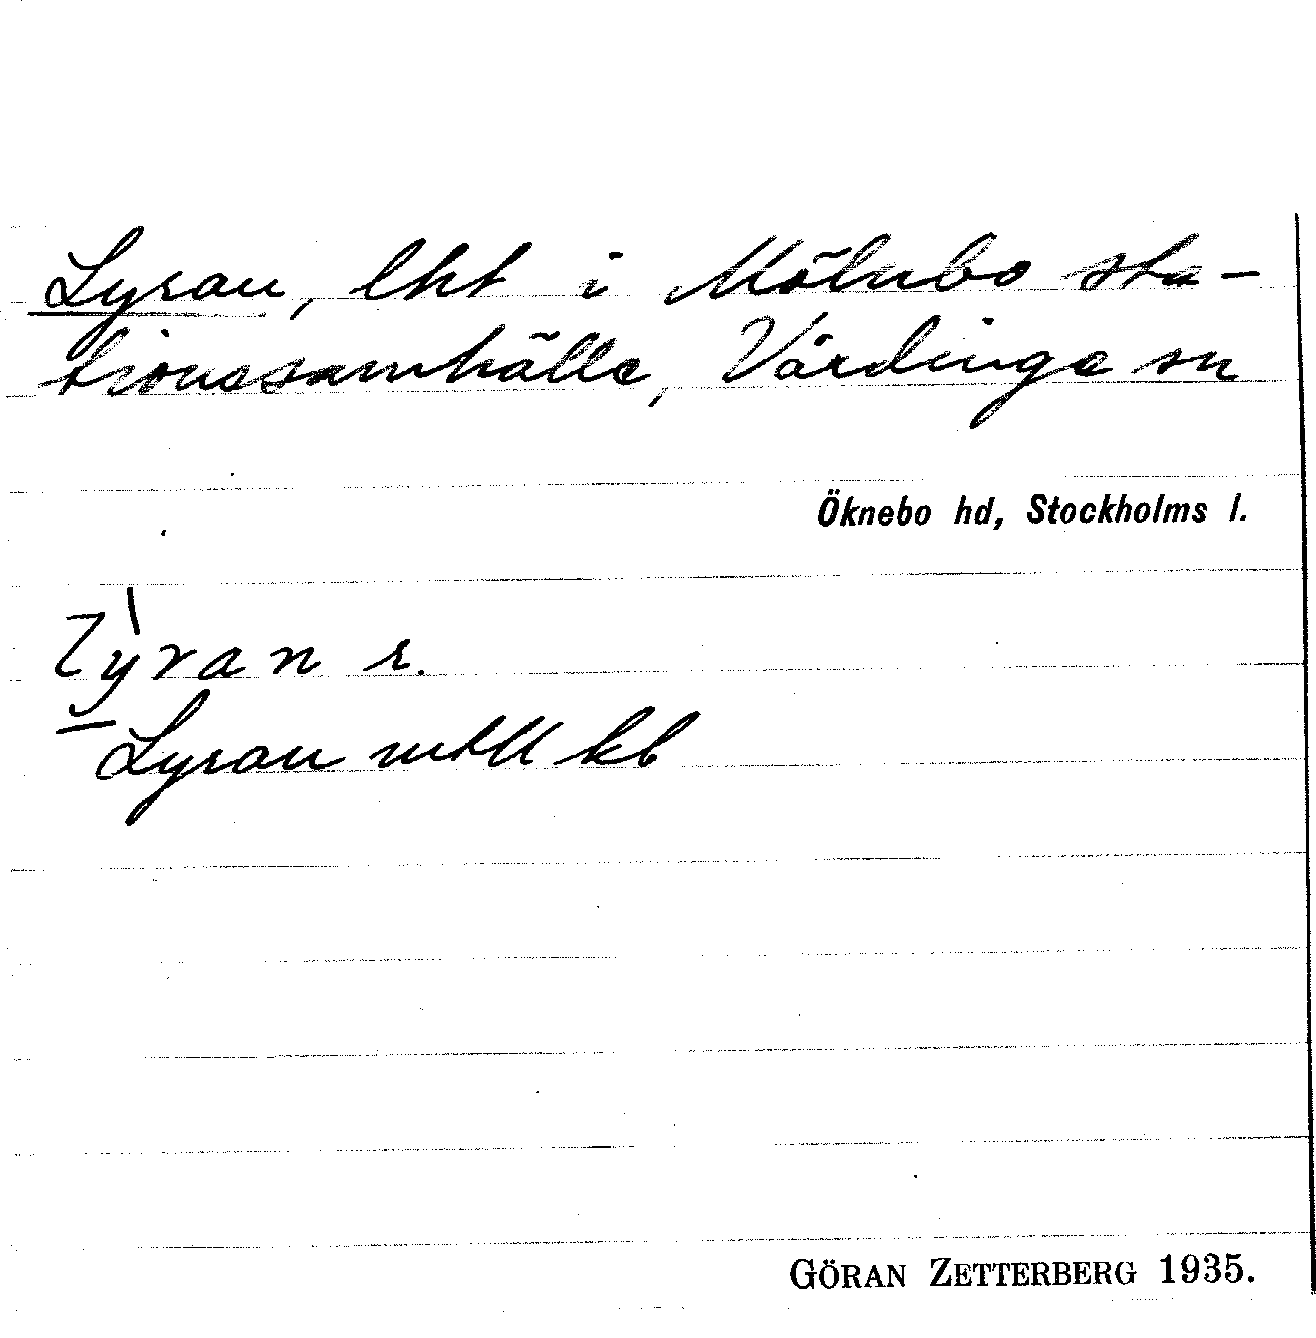 Lyran, lht i Mölnbo sta-
tionssamhälle, Vårdinge sn
Öknebo hd, Stockholms l.
Lỳran r.
Lyran mtll kb
GÖRAN ZETTERBERG 1935.